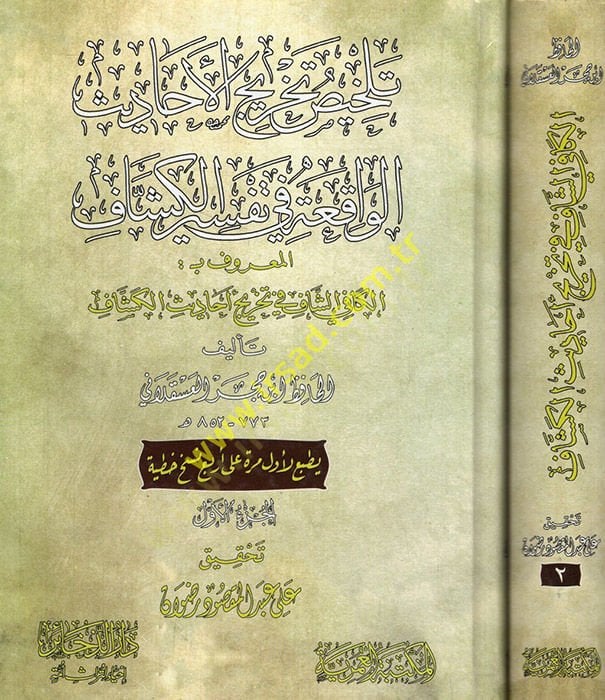 تلخيص تخريج الأحاديث
الواقعة في تفسير الكشاف
المعروف بـ :
الكافي الشاف في تخريج أحاديث الكشاف
تأليف
الحافظ ابن حجر العسقلاني
٧٧٣ - ٨٥٢ هـ
يطبع لأول مرة على أربع نسخ خطية
الجزء الأول
تحقيق
علي عبد المقصود رضوان
المكتبة العمرية
دار الذخائر
الحافظ
ابن حجر العسقلاني
الكافي الشاف في تخريج أحاديث الكشاف
تحقيق
علي عبد المقصود رضوان
٢
المكتبة العمرية